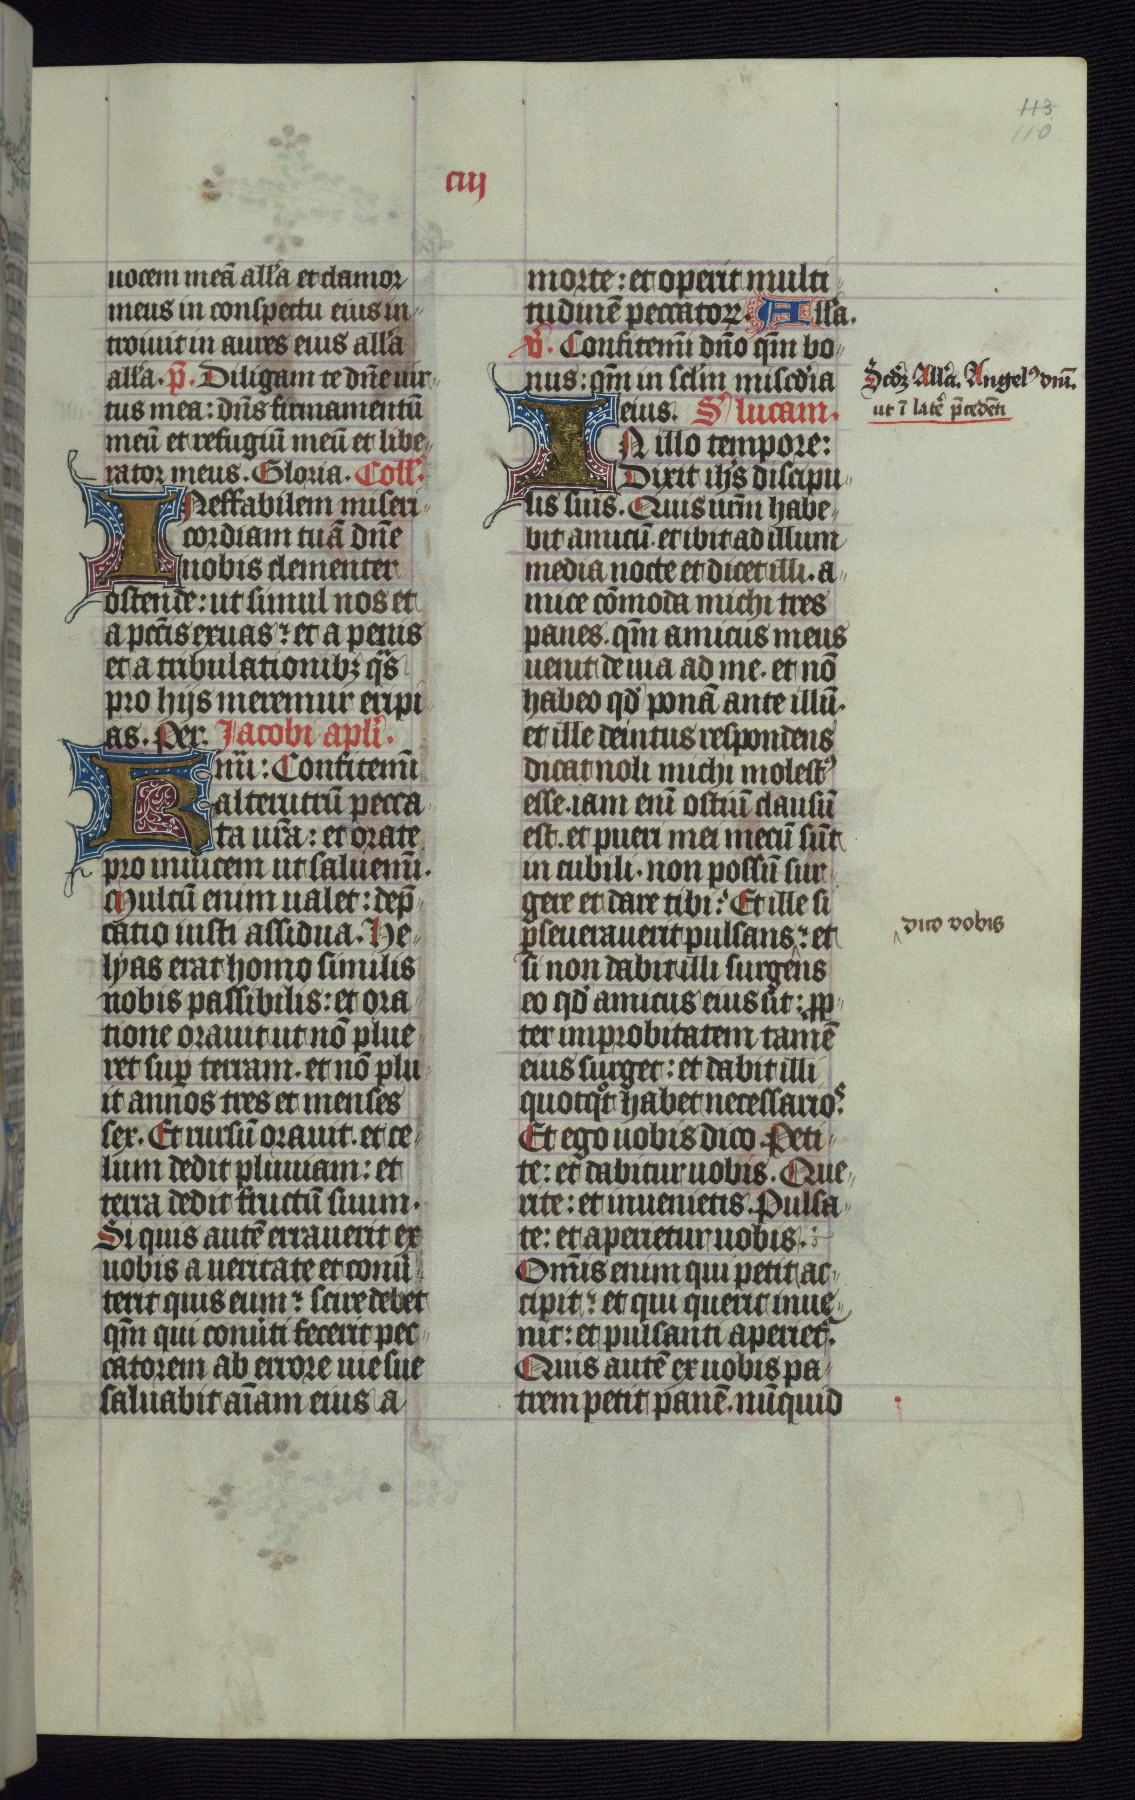 113
110
ciij
uocem meā all'a et clamor
meus in conspectu eius in
troiuit in aures eius all'a
all'a. p̄. Diligam te dn̄e uir
tus mea: dn̄s firmamentū
meū et refugiū meū et libe
rator meus. Gloria. Coll'.
INeffabilem miseri
cordiam tuā dn̄e
nobis clementer
ostende: ut simul nos et
a pctīs exuas: et a penis
et a tribulationibꝫ qs̄
pro hijs meremur eripi
as. Per. Jacobi apl'i.
Kmī: Confitemī
alterutrū pecca
ta ur̄a: et orate
pro inuicem ut saluemī.
Multū enim ualet: dep̄
catio iusti assidua. He
lyas erat homo similis
nobis passibilis: et ora
tione orauit ut nō plue
ret suꝑ terram. et nō plu
it annos tres et menses
sex. Et rursū orauit. et ce
lum dedit pluuiam: et
terra dedit fructū suum.
Si quis autē errauerit ex
uobis a ueritate et conū
terit quis eum: scire debet
qm̄ qui conūti fecerit pec
catorem ab errore uie sue
saluabit aīam eius a
morte: et operit multi
tudinē peccatoꝝ. All'a.
v̄. Confitemī dn̄o qm̄ bo
nus: qm̄ in sclm̄ misc̄dia
eius. S' lucam.
IN illo tempore:
Dixit ih̄s discipu
lis suis. Quis ur̄m habe
bit amicū. et ibit ad illum
media nocte et dicet illi. a
mice cōmoda michi tres
panes. qm̄ amicus meus
uenit de uia ad me. et nō
habeo qd' ponā ante illū.
et ille deintus respondens
dicat noli michi molestꝰ
esse. iam enī ostiū clausū
est. et pueri mei mecū sūt
in cubili. non possū sur
gere et dare tibi: Et ille si
ꝑseuerauerit pulsans: et
si non dabit illi surgens
eo qd' amicus eius sit: ꝓp
ter improbitatem tamē
eius surget: et dabit illi
quotqot habet necessarios.
Et ego uobis dico. Peti
te: et dabitur uobis. Que
rite: et inuenietis. Pulsa
te: et aperietur uobis.
Om̄is enim qui petit ac
cipit: et qui querit inue
nit: et pulsanti aperiet'.
Quis autē ex uobis pa
trem petit panē. nūquid
Scd'ꝫ All'a. Angelꝰ dnī.
ut ī lat'e p̄cedēti
dico vobis